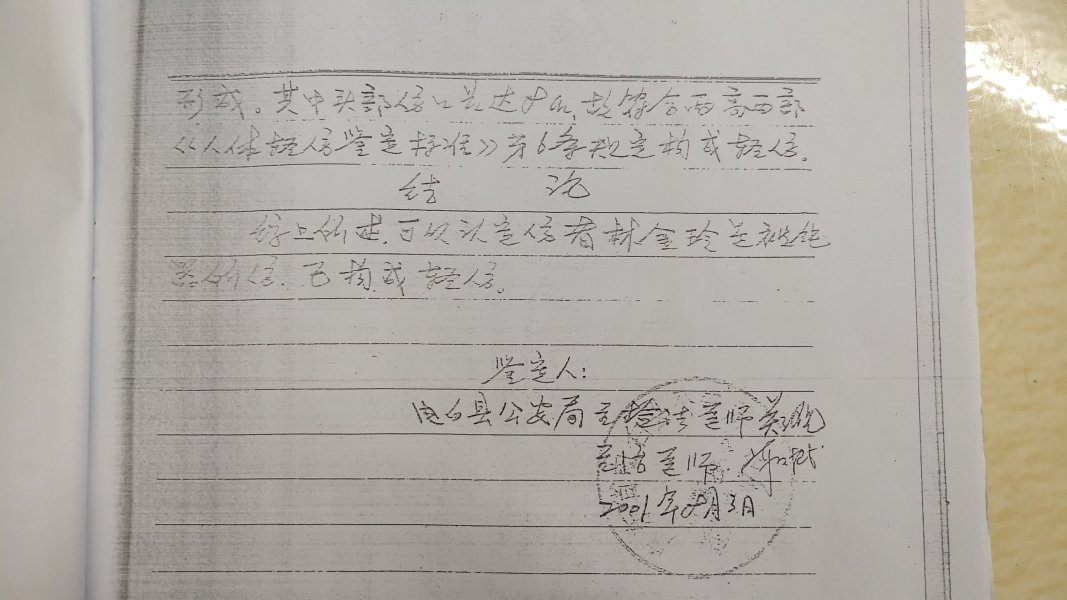 形成。其中头部伤口长达8cm, 故符合两高两部
《人体轻伤鉴定标准》第6条规定构成轻伤。
结 论
综上所述,可以认定伤者林金玲是被钝
器所伤、已构成轻伤。
鉴定人:
电白县公安局主检法医师
法医师
2001年8月3日